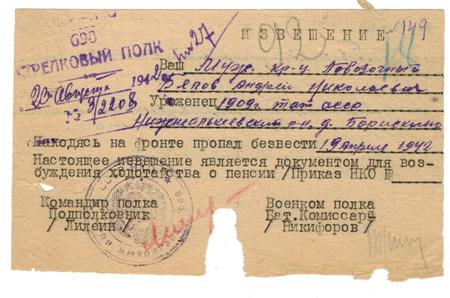 ИЗВЕЩЕНИЕ №149
690
СТРЕЛКОВЫЙ ПОЛК
92
14
27
Ваш Муж кр-ц Повозочный
Белов Андрей Николаевич
23 Августа 1942
№ 3/2208
Уроженец 1909г тат асср
р-н. д. Борискино
Находясь на фронте пропал безвести 19 Апреля 1942
Настоящее извещение является документом для воз-
буждения ходотайства о пенсии /Приказ НКО №
Командир полка Военком полка
Подполковник Бат.Комиссар
/ Лидеин / / Никифоров /